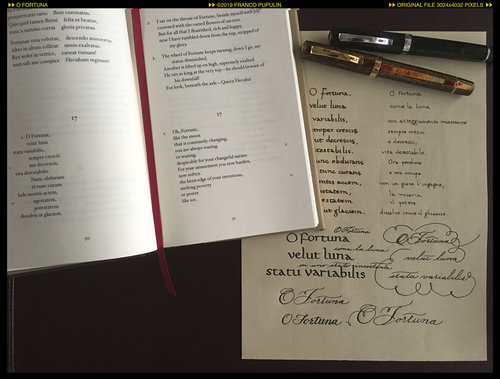 O FORTUNA
©2019 FRANCO PUPULIN
ORIGINAL FILE 3024x4032 PIXELS
prosperitatis vario
flore coronatus.
Quicquid tamen florui
felix et beatus,
nunc a summo corrui
gloria privatus.
Fortunae rota volvitur;
descendo minoratus,
Alter in altum tollitur
nimis exaltatus.
Rex sedet in vertice,
caveat ruinam!
nam sub axe scriptum
Hecubam reginam!
17
1. O Fortuna,
velut luna
statu variabilis,
semper crescis
aut decrescis,
vita detestabilis
Nunc obdurans
et tunc curans
ludo mentis aciem,
egestatem,
potestatem
dissolvit ut glaciem.
50
2. I sat on the throne of Fortune, beside myself with joy
crowned with the varied flowers of success.
But for all that I flourished, rich and happy,
now I have tumbled down from the top, stripped of
my glory.
3. The wheel of Fortune keeps turning; down I go, my
status diminished.
Another is lifted up on high, supremely exalted.
He sits as king at the very top—he should beware of
his downfall!
For look, beneath the axle—Queen Hecuba!
17
1. Oh, Fortune,
like the moon
that is constantly changing,
you are always waxing
or waning,
despicable for your changeful nature.
For your amusement you now harden,
now soften
the keen edge of your intentions,
melting poverty
or power
like ice.
51
O Fortuna,
velut luna
variabilis,
semper crescis
ut decrescis,
testabilis.
unc obdurans
tunc curans
mentis aciem,
estatem
estatem
ut glaciem.
O Fortuna
come la luna
con atteggiamento incostante
sempre cresci
o decresci,
vita detestabile.
Ora perdura
e ora occupa
con un gioco l'ingegno,
la miseria
il potere
dissolve come il ghiaccio
O Fortuna
O fortuna
come la luna
velut luna
statu variabilis
O Fortuna
velut luna
statu variabilis
O Fortuna
O Fortuna
O Fortuna